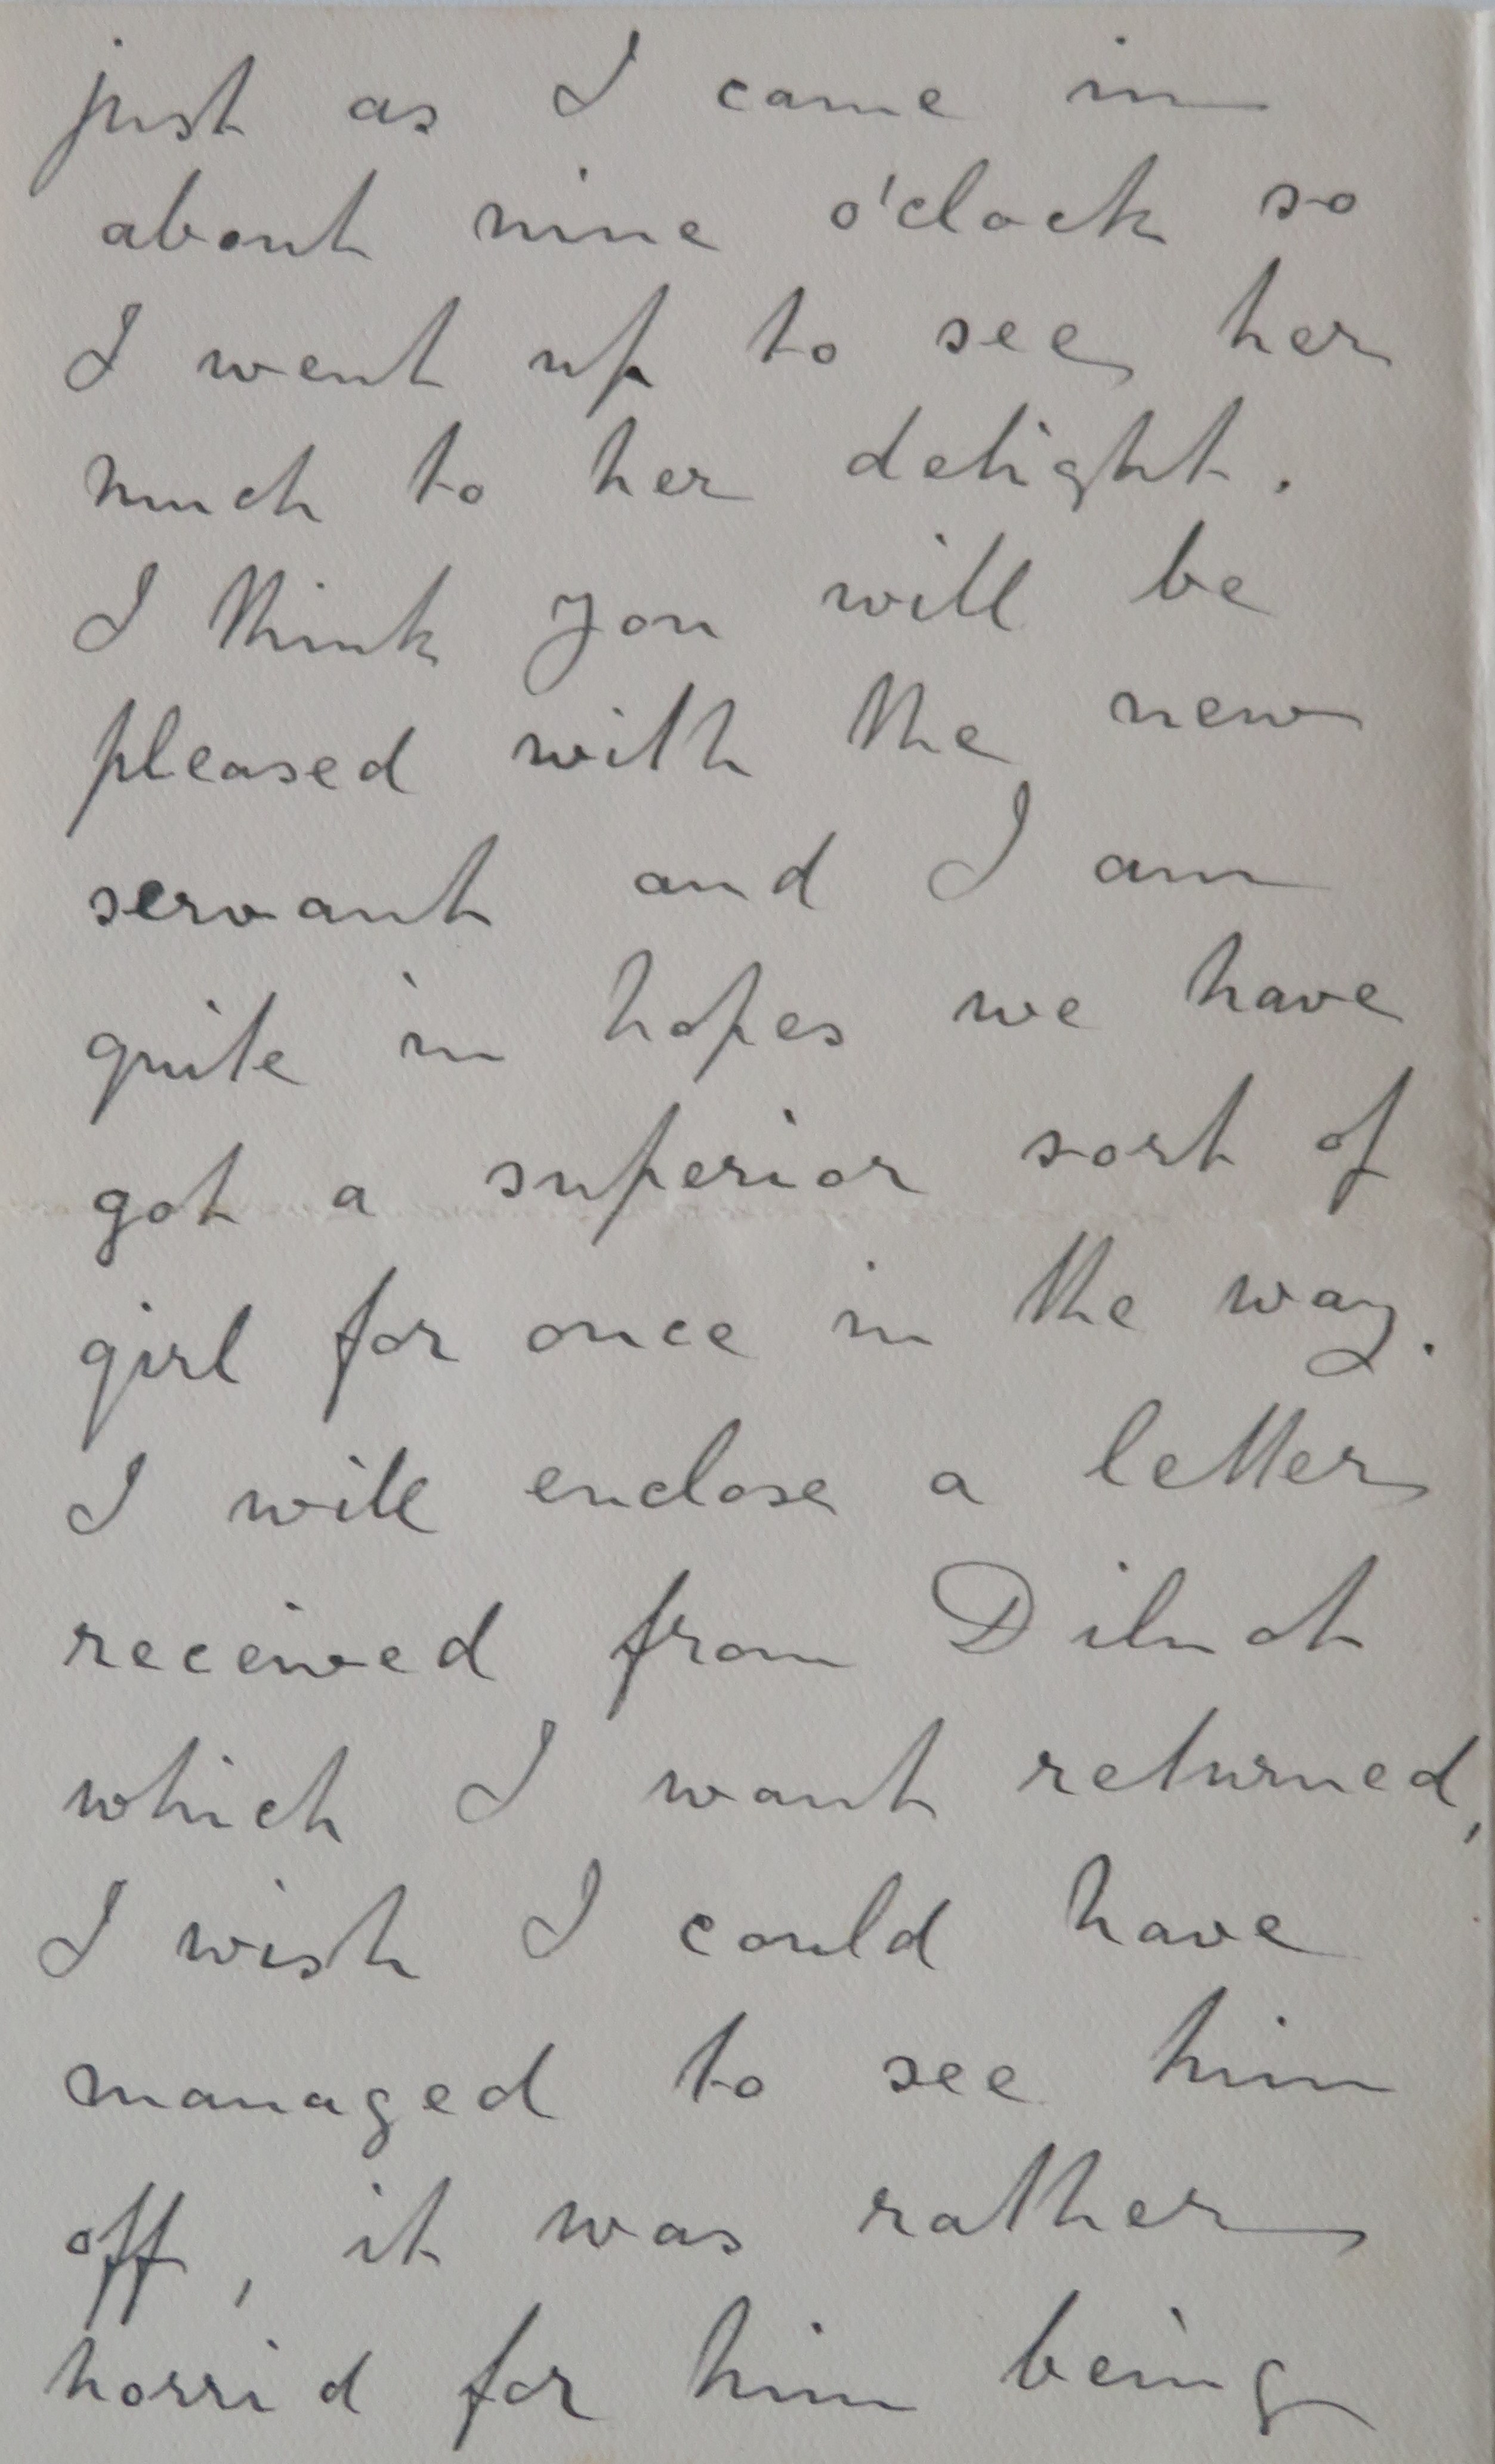 just as I came in
about nine o'clock so
I went up to see her
much to her delight.
I think you will be
pleased with the new
servant and I am
quite in hopes we have
got a superior sort of
girl for once in the way.
I will enclose a letter
received from
which I want returned,
I wish I could have
managed to see him
off, it was rather
horrid for him being